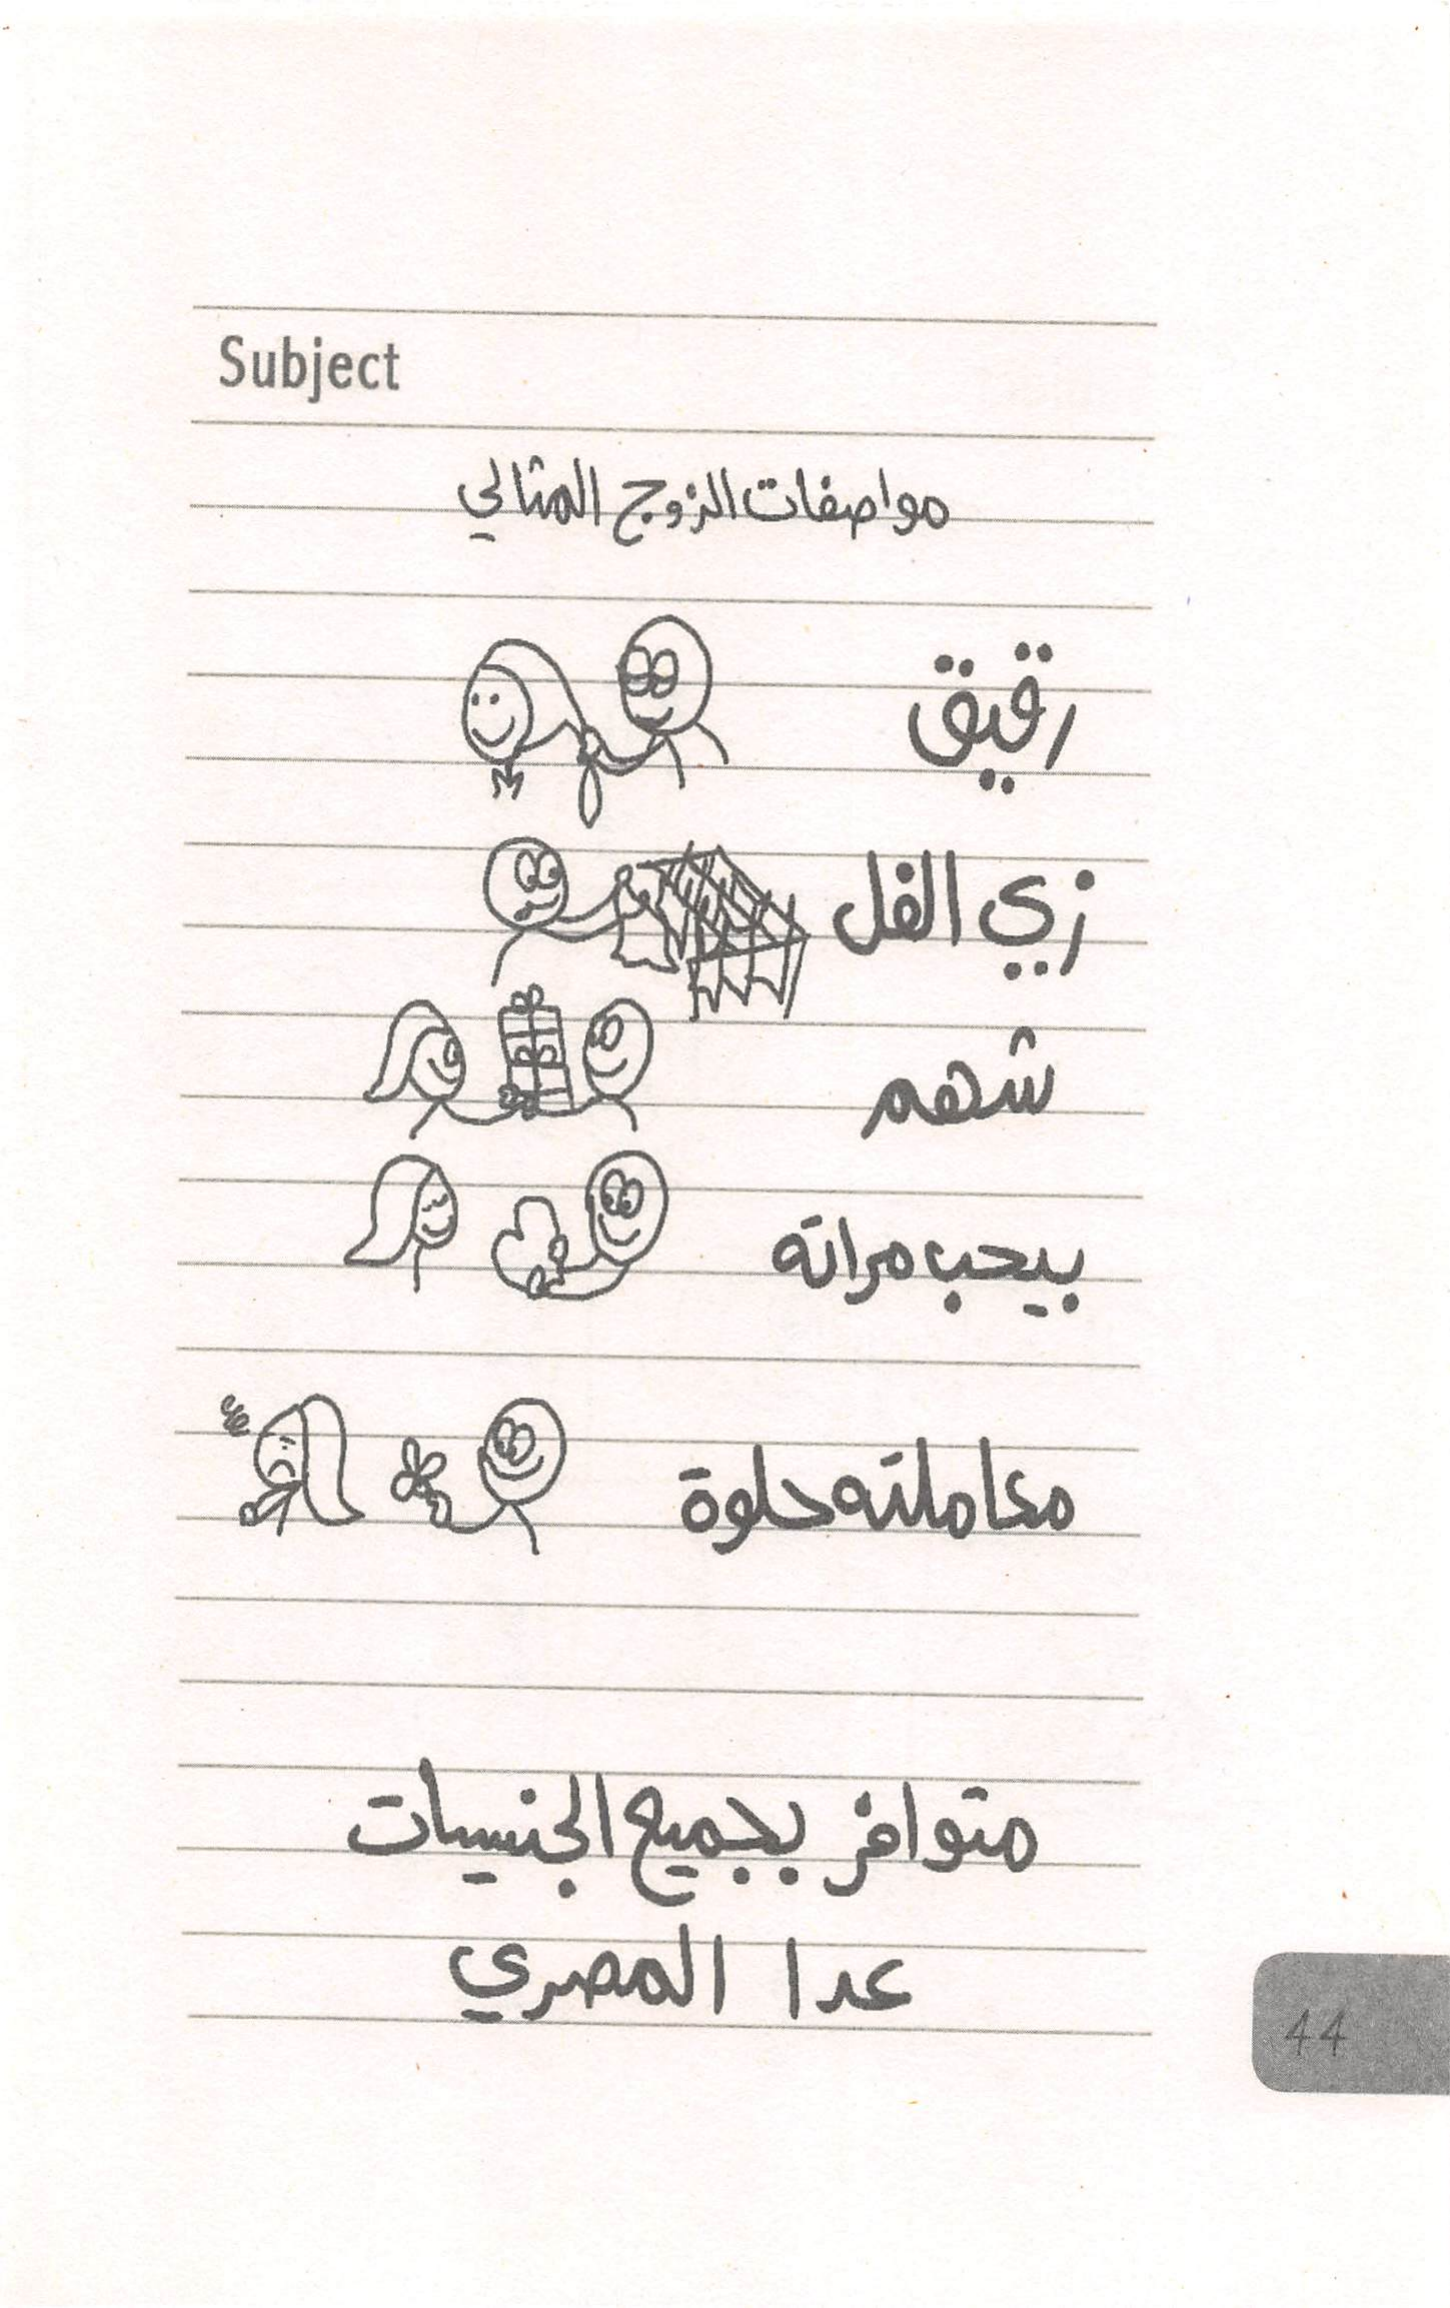 Subject
مواصفات الزوج المثالي
رقيق
زي الفل
شهم
بيحب مراته
معاملته حلوة
متوافر بجميع الجنسيات
عدا المصري
44